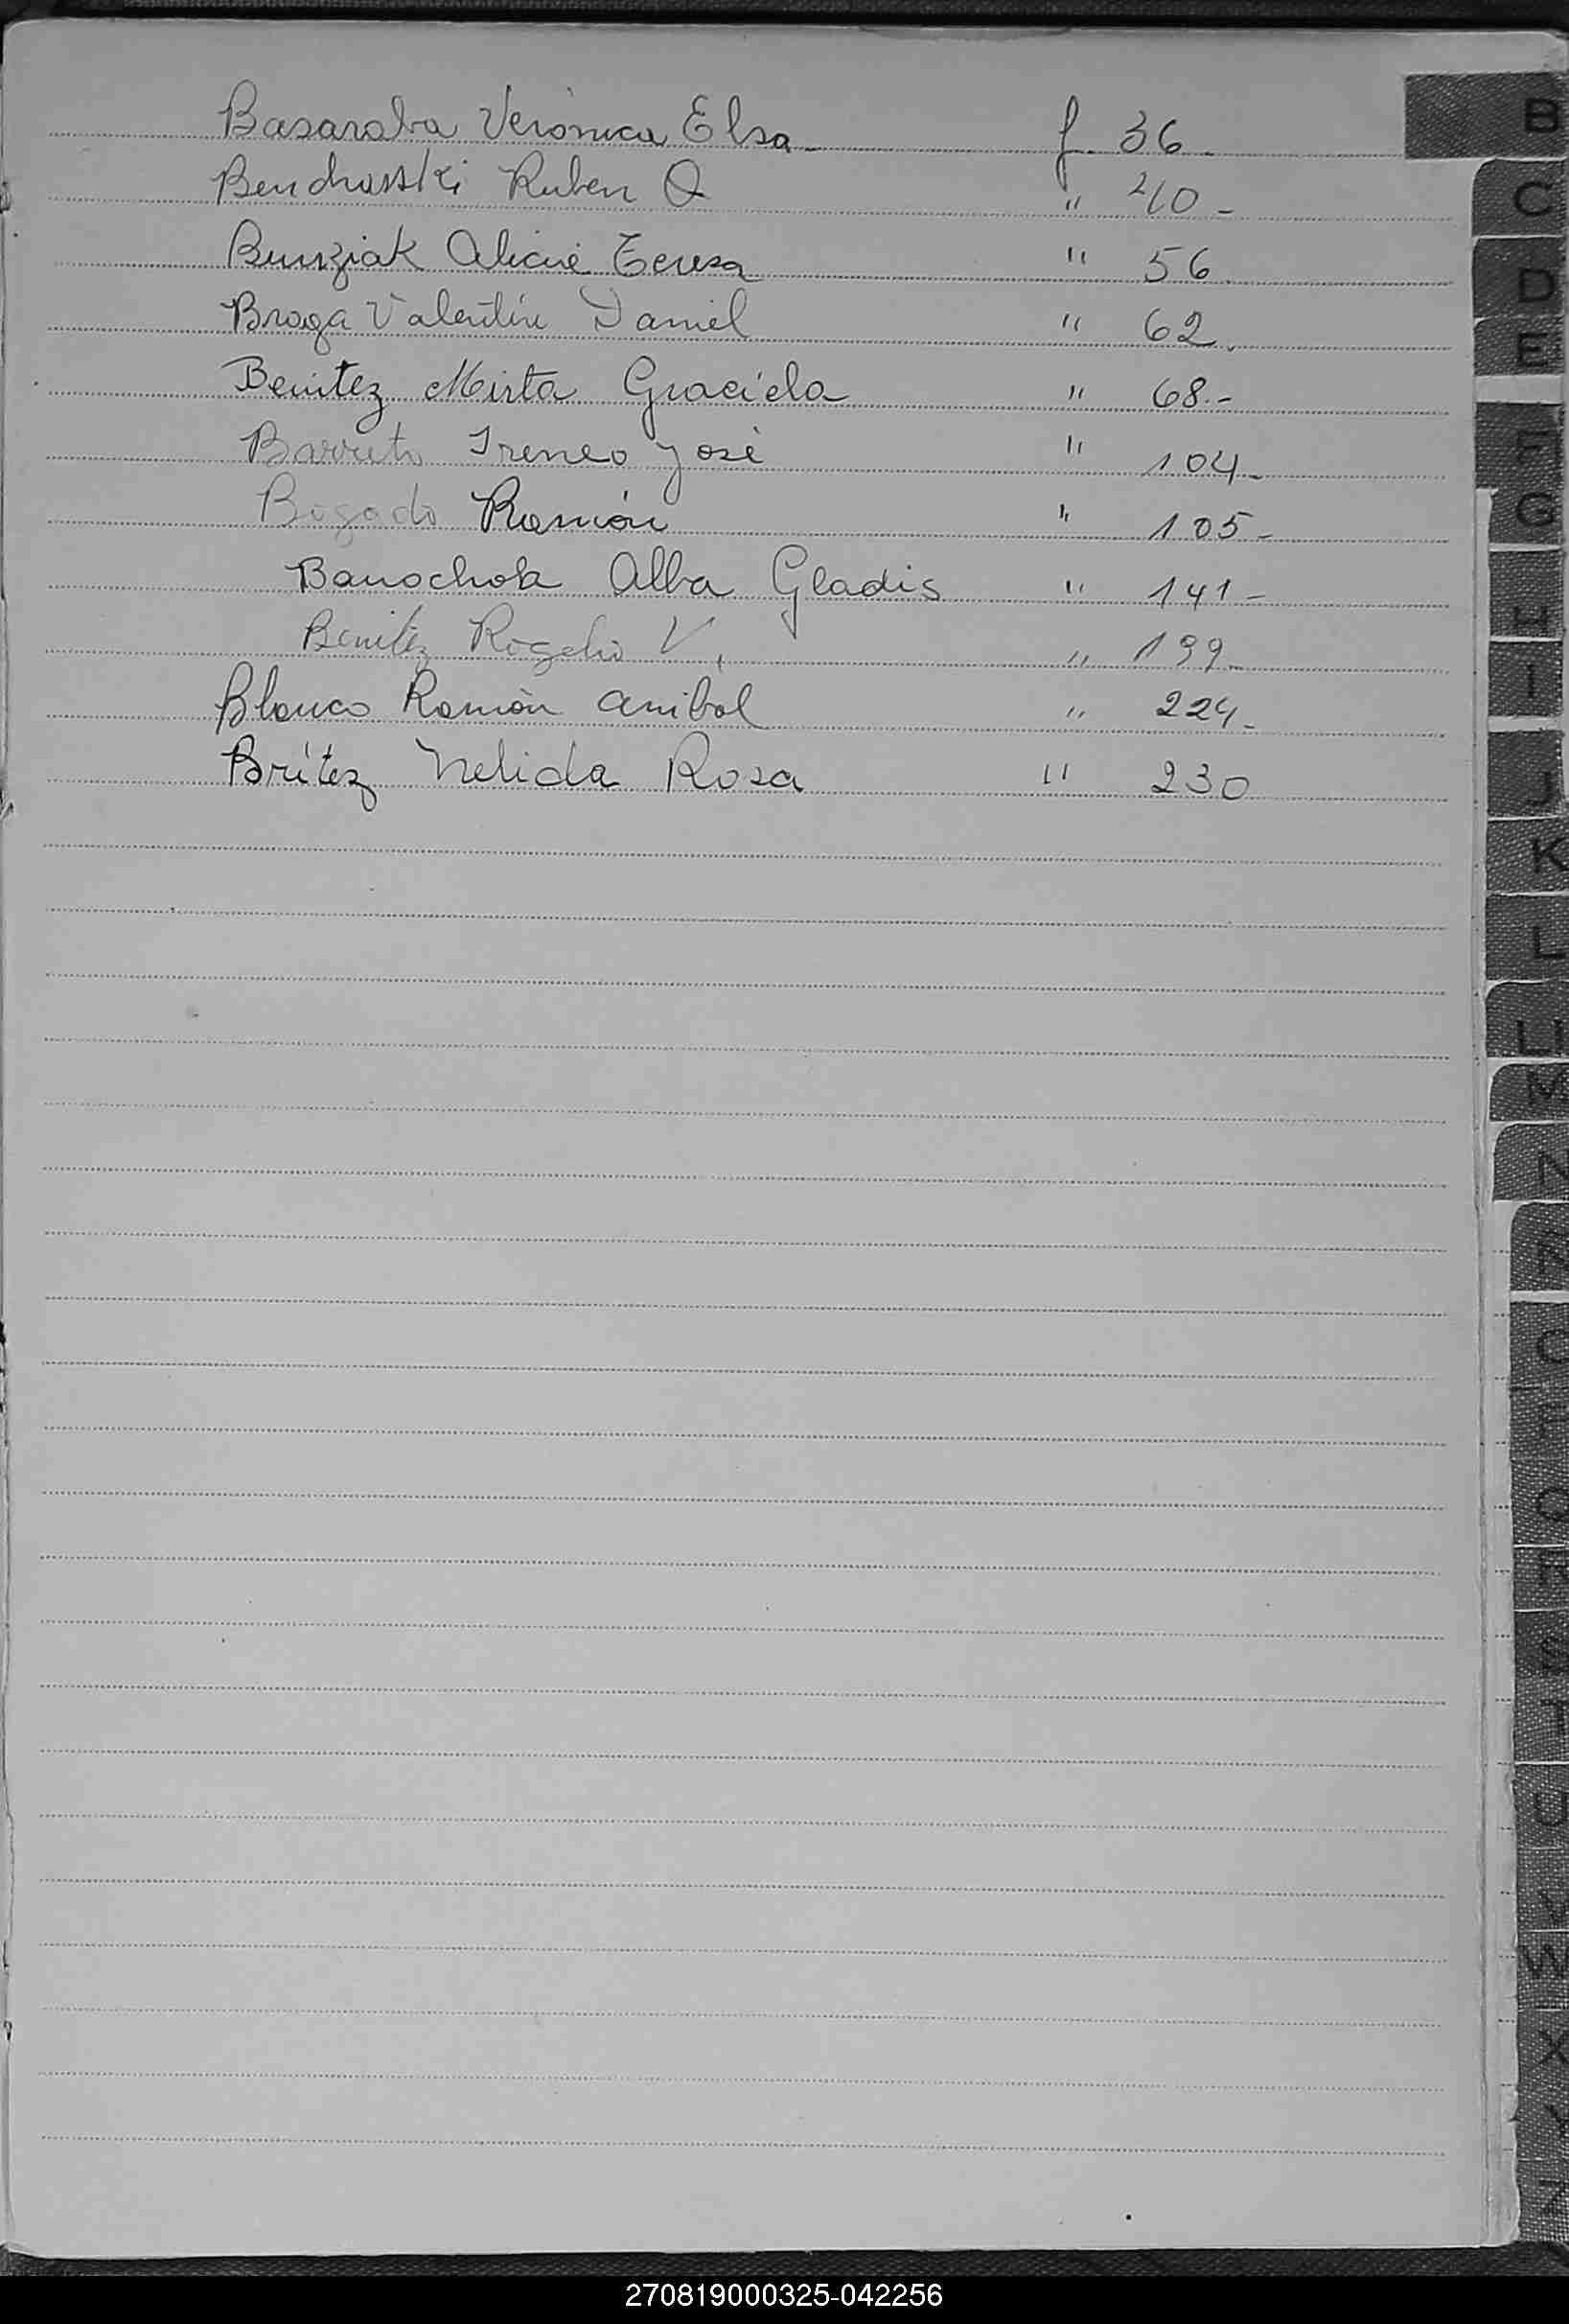 Basaraba Verónica Elsa - f. 36 -
Benchasski Ruben O " 40 -
Bunziak Alicia Teresa " 56.
Braga Valentín Daniel " 62.
Benitez Mirta Graciela " 68.-
Barreto Ireneo José " 104-
Bogado Ramón " 105-
Banochok Alba Gladis " 141-
Benítez Rogelio V. " 199-
Blanco Ramón Anibal " 224-
Brítez Nelida Rosa " 230
B
C
D
E
F
G
H
I
J
K
L
LL
M
N
Ñ
O
P
Q
R
S
T
U
V
W
X
Y
Z
270819000325-042256